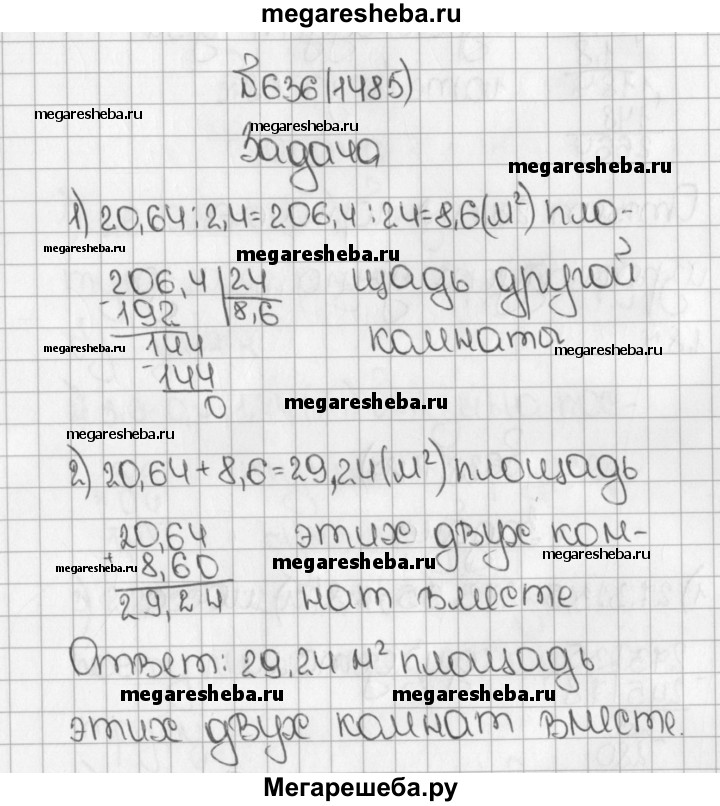 megaresheba.ru
№636(1485)
megaresheba.ru
megaresheba.ru
Задача
megaresheba.ru
1) 20,64:2,4=206,4:24=8,6(м²) пло-
megaresheba.ru
megaresheba.ru
206,4 24 щадь другой
-192 8,6
144 комнаты
megaresheba.ru
megaresheba.ru
-144
0
megaresheba.ru
megaresheba.ru
2) 20,64+8,6=29,24(м²) площадь
20,64 этих двух ком-
megaresheba.ru
+8,60
megaresheba.ru
megaresheba.ru
29,24 нат вместе
Ответ: 29,24 м² площадь
megaresheba.ru
megaresheba.ru
этих двух комнат вместе.
Мегарешеба.ру